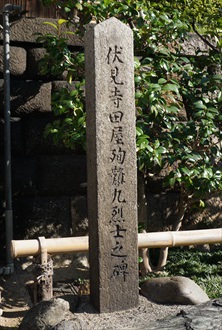 伏見寺田屋殉難九烈士之碑